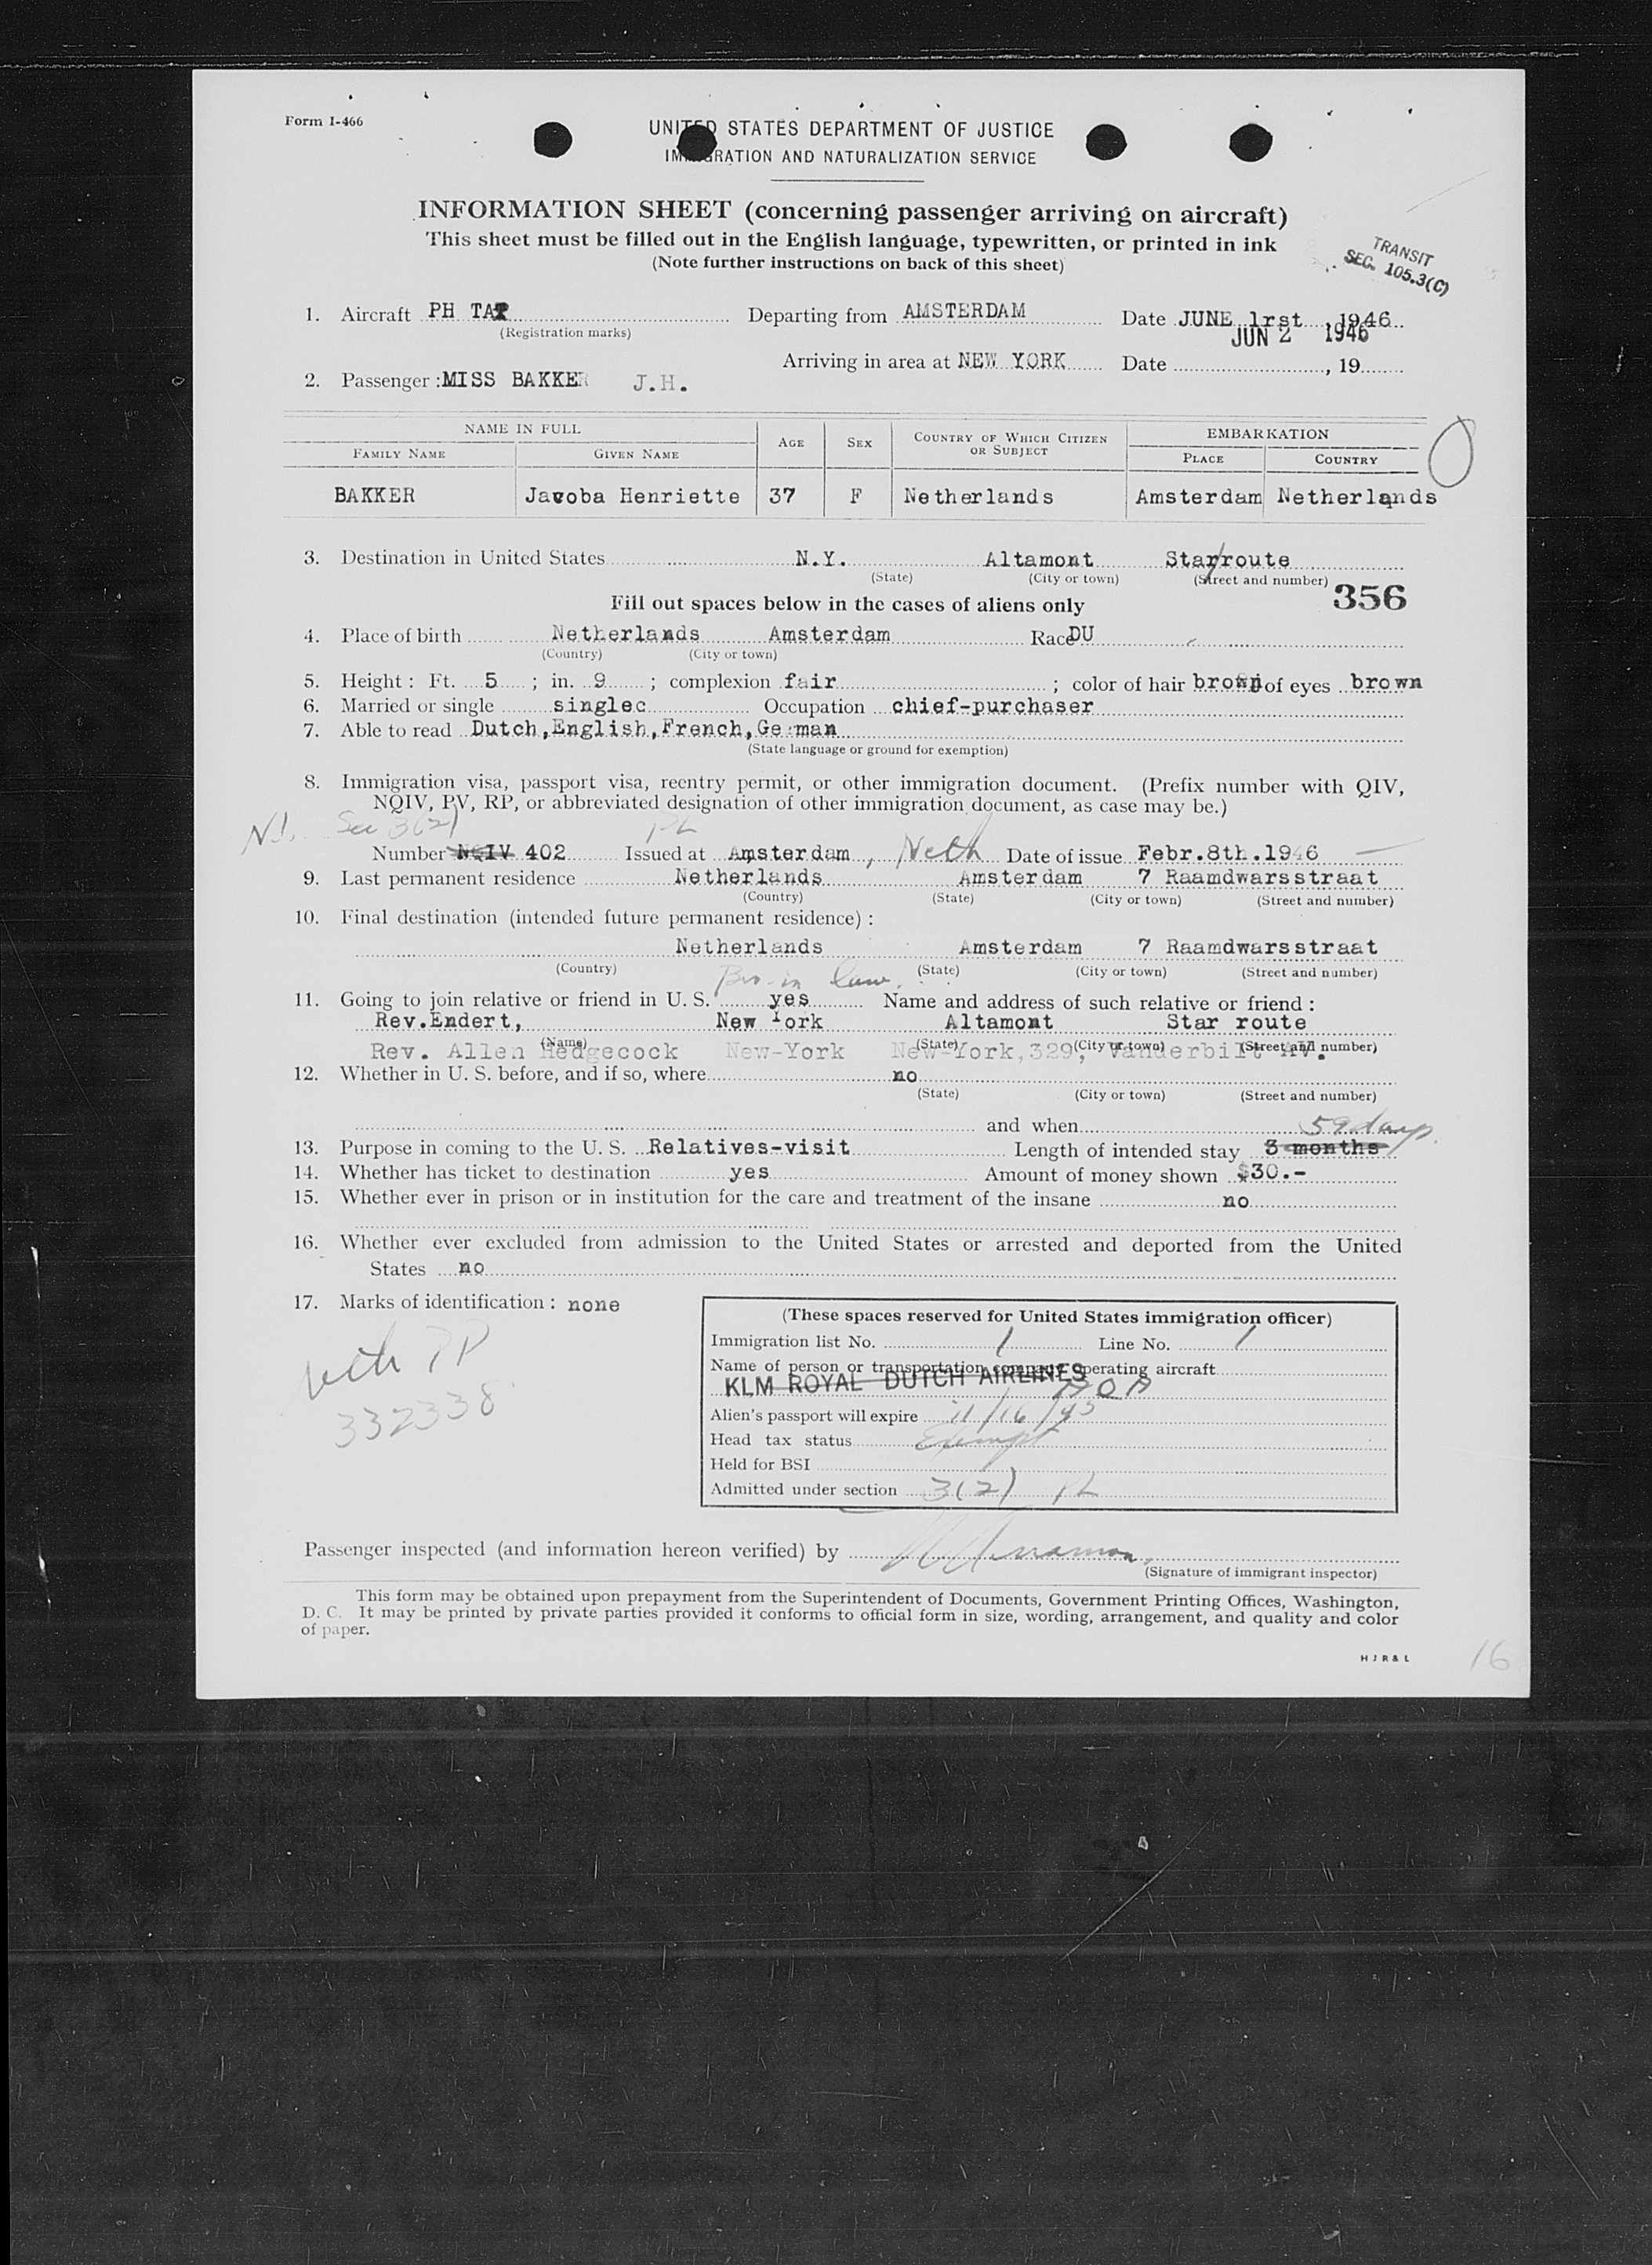 Form I-466
UNITED STATES DEPARTMENT OF JUSTICE
IMMIGRATION AND NATURALIZATION SERVICE
INFORMATION SHEET (concerning passenger arriving on aircraft)
This sheet must be filled out in the English language, typewritten, or printed in ink
(Note further instructions on back of this sheet)
TRANSIT
SEC. 105.3(C)
1. Aircraft PH TA Departing from AMSTERDAM Date JUNE 1rst, 1946
(Registration marks)
JUN 2 1946
Arriving in area at NEW YORK Date , 19
2. Passenger : MISS BAKKER J.H.
NAME IN FULL AGE SEX COUNTRY OF WHICH CITIZEN OR SUBJECT EMBARKATION
FAMILY NAME GIVEN NAME PLACE COUNTRY
BAKKER Jacoba Henriette 37 F Netherlands Amsterdam Netherlands
3. Destination in United States N.Y. Altamont Star route
(State) (City or town) (Street and number)
356
Fill out spaces below in the cases of aliens only
4. Place of birth Netherlands Amsterdam Race DU
(Country) (City or town)
5. Height : Ft. 5 ; in. 9 ; complexion fair ; color of hair brown ; of eyes brown
6. Married or single singlec Occupation chief-purchaser
7. Able to read Dutch,English,French,German
(State language or ground for exemption)
8. Immigration visa, passport visa, reentry permit, or other immigration document. (Prefix number with QIV,
NQIV, PV, RP, or abbreviated designation of other immigration document, as case may be.)
Sec 3(2) PL
Number NQIV 402 Issued at Amsterdam, Neth Date of issue Febr.8th.1946
9. Last permanent residence Netherlands Amsterdam 7 Raamdwarsstraat
(Country) (State) (City or town) (Street and number)
10. Final destination (intended future permanent residence) :
Netherlands Amsterdam 7 Raamdwarsstraat
(Country) (State) (City or town) (Street and number)
Bro-in law.
11. Going to join relative or friend in U. S. yes Name and address of such relative or friend :
Rev.Endert, New York Altamont Star route
(Name) (State) (City or town) (Street and number)
Rev. Allen Hedgecock New-York New-York,329, Vanderbilt Av.
12. Whether in U. S. before, and if so, where no
(State) (City or town) (Street and number)
and when
59 days
13. Purpose in coming to the U. S. Relatives-visit Length of intended stay 3 months
14. Whether has ticket to destination yes Amount of money shown $30.-
15. Whether ever in prison or in institution for the care and treatment of the insane no
16. Whether ever excluded from admission to the United States or arrested and deported from the United
States no
17. Marks of identification : none
Neth PP
332338
(These spaces reserved for United States immigration officer)
Immigration list No. 1 Line No. 1
Name of person or transportation company operating aircraft
KLM ROYAL DUTCH AIRLINES
Alien's passport will expire
Head tax status Exempt
Held for BSI
Admitted under section 3(2) PL
Passenger inspected (and information hereon verified) by
(Signature of immigrant inspector)
This form may be obtained upon prepayment from the Superintendent of Documents, Government Printing Offices, Washington,
D. C. It may be printed by private parties provided it conforms to official form in size, wording, arrangement, and quality and color
of paper.
H J R & L
16